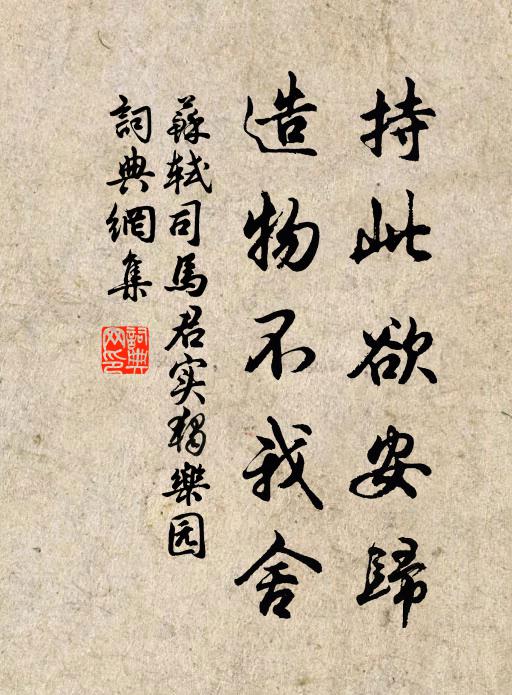 持此欲安歸
造物不我舍
蘇轼司馬君实獨樂园
詞典網集
詞典
网印